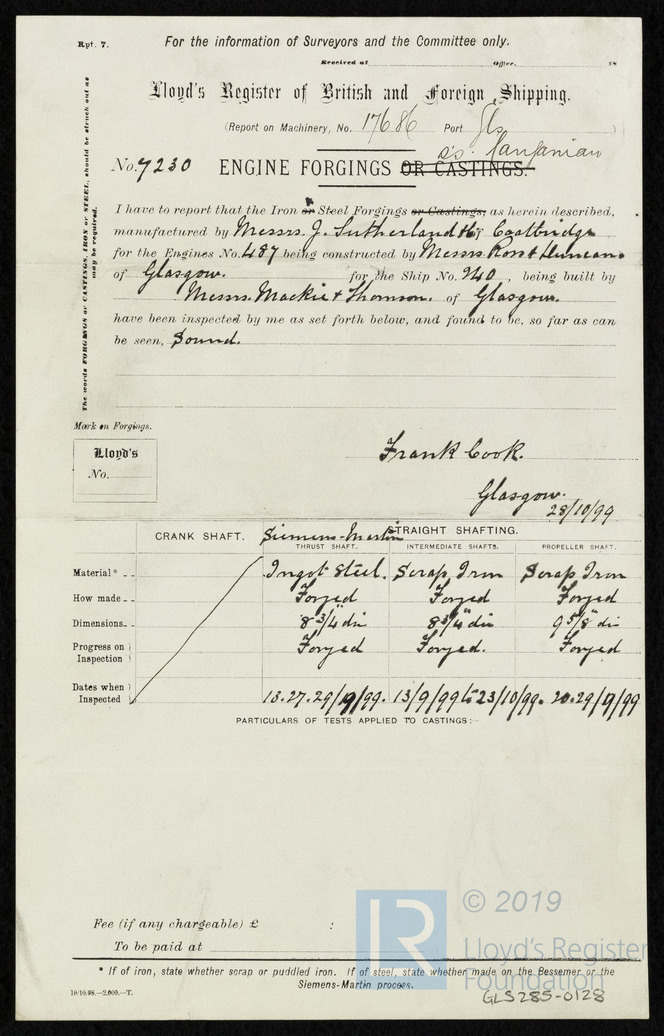 Rpt. 7.
For the information of Surveyors and the Committee only.
Received at Office, 18
Lloyd's Register of British and Foreign Shipping.
(Report on Machinery, No. 17686 Port Gls )
s.s.
No. 7230 ENGINE FORGINGS OR CASTINGS.
The words FORGINGS or CASTINGS, IRON or STEEL, should be struck out as may be required.
I have to report that the Iron or Steel Forgings or Castings, as herein described,
manufactured by Messrs. J. Sutherland of Coatbridge
for the Engines No. 487 being constructed by Messrs Ross & Duncan.
of Glasgow. for the Ship No. 940, being built by
Messrs. Mackie & Thomson. of Glasgow.
have been inspected by me as set forth below, and found to be, so far as can
be seen, Sound.
Mark on Forgings.
Lloyd's
No.
Frank Cook.
Glasgow.
28/10/99
CRANK SHAFT. Siemens-Martin STRAIGHT SHAFTING.
THRUST SHAFT. INTERMEDIATE SHAFTS. PROPELLER SHAFT.
Material* Ingot Steel. Scrap Iron Scrap Iron
How made Forged Forged Forged
Dimensions 8 3/4" dia 8 3/4" dia 9 5/8" dia
Progress on Inspection Forged Forged. Forged
Dates when Inspected 13.27.29/9/99. 13/9/99 to 23/10/99. 20.29/9/99
PARTICULARS OF TESTS APPLIED TO CASTINGS:—
Fee (if any chargeable) £ :
To be paid at
* If of iron, state whether scrap or puddled iron. If of steel, state whether made on the Bessemer or the
Siemens-Martin process.
10/10.98.—2,000.—T.
© 2019
LR
Lloyd's Register
Foundation
GLS285-0128